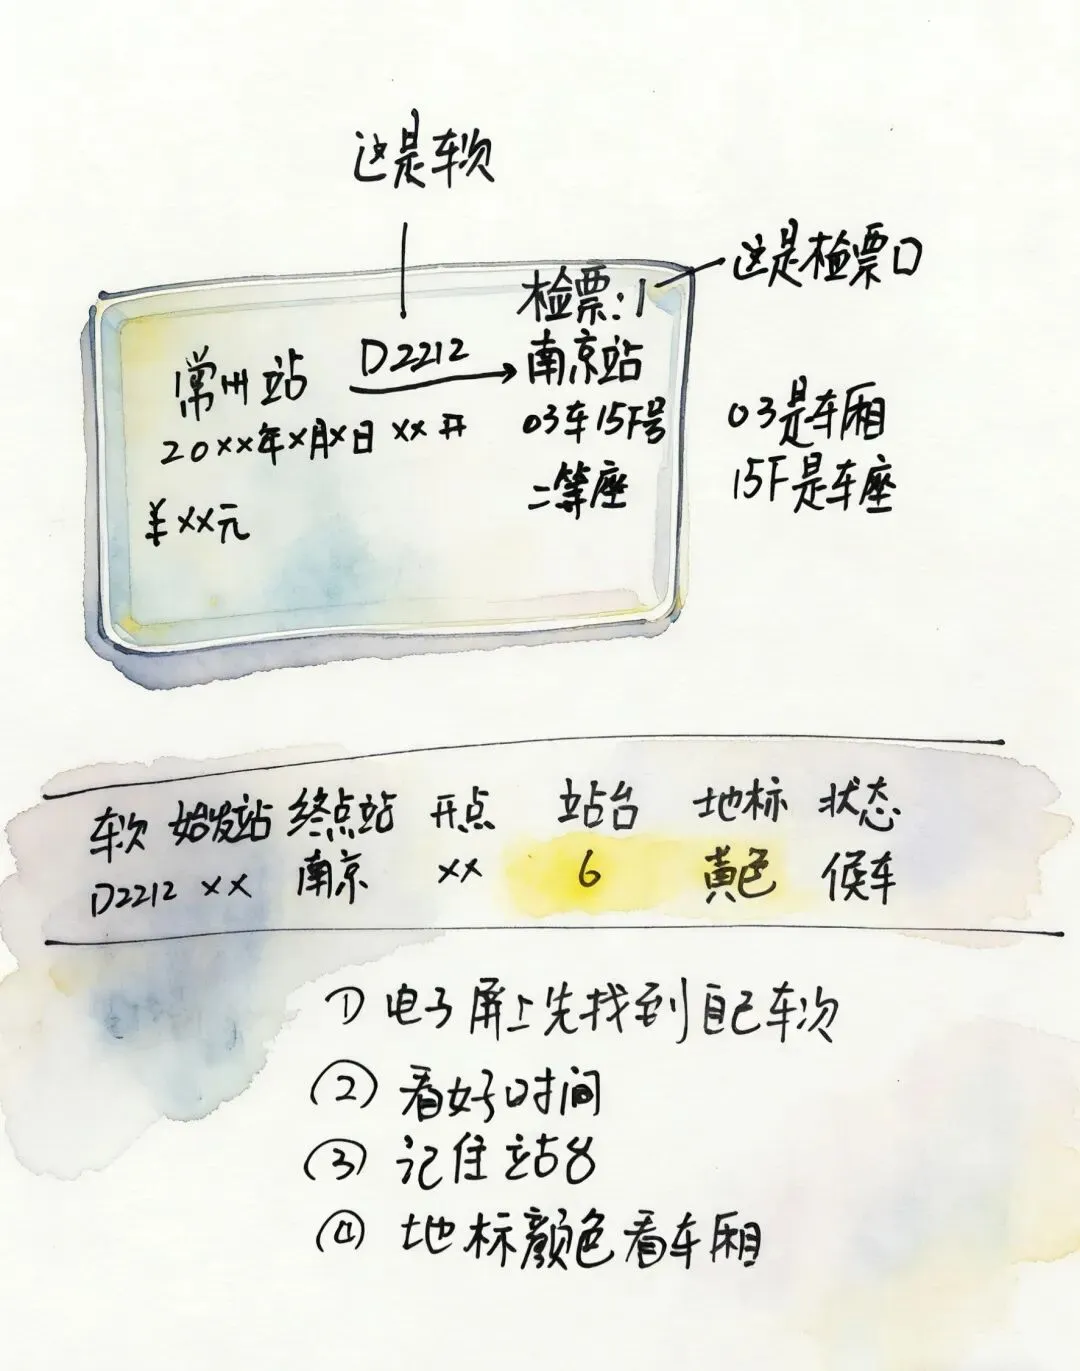 这是车次
这是检票口
检票:1
常州站 D2212 南京站
20××年×月×日 ××开 03车15F号
二等座
¥××元
03是车厢
15F是车座
车次 始发站 终点站 开点 站台 地标 状态
D2212 ×× 南京 ×× 6 黄色 候车
① 电子屏上先找到自己车次
② 看好时间
③ 记住站台
④ 地标颜色看车厢